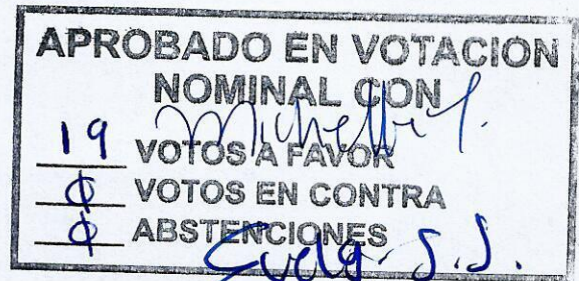 APROBADO EN VOTACION
NOMINAL CON
19 VOTOS A FAVOR
0 VOTOS EN CONTRA
0 ABSTENCIONES